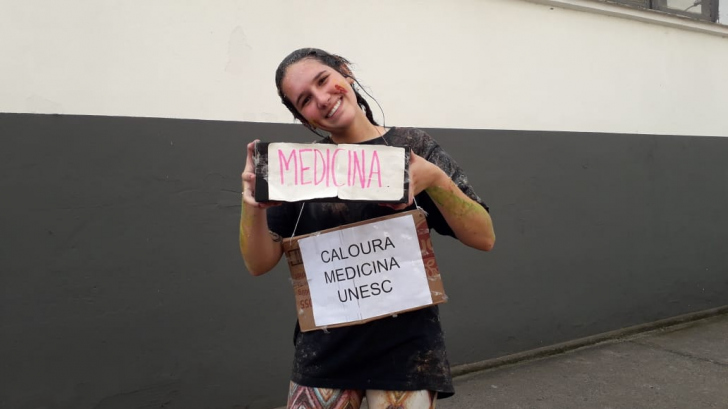 MEDICINA
CALOURA
MEDICINA
UNESC